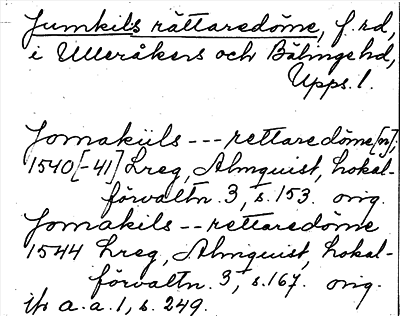 Jumkils rättaredöme, f. rd,
i Ulleråkers och Bälinge hd,
Upps. l.
Jomakiils --- rettaredöme[n],
1540[-41] Lreg, Almquist, Lokal-
förvaltn. 3, s. 153. orig.
Jomakils -- rettaredöme
1544 Lreg, Almquist, Lokal-
förvaltn. 3, s. 167. orig.
jfr a. a. 1, s. 249.